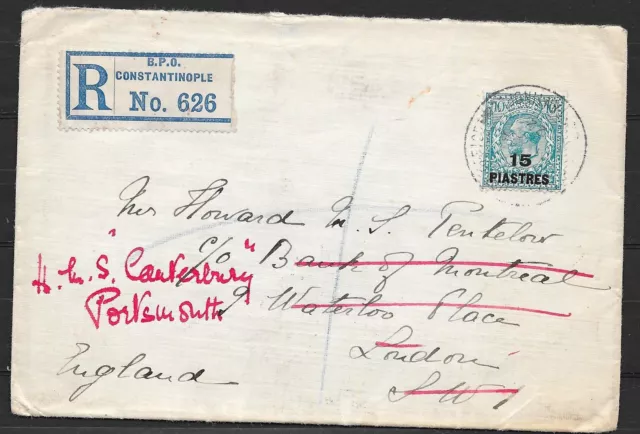 B.P.O.
CONSTANTINOPLE
R No. 626
10D 10D
15
PIASTRES
Mrs Howard M. S. Penkelow
c/o Bank of Montreal
"H.M.S. Canterbury"
Portsmouth
9 Waterloo Place
London
England
S W 1